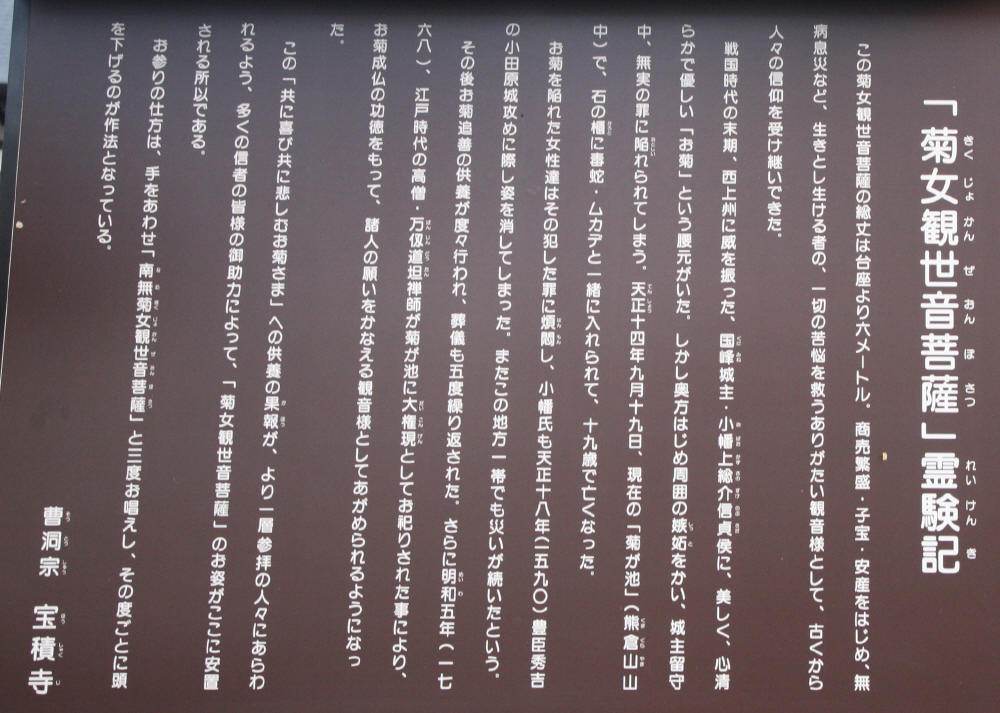 「菊女観世音菩薩」霊験記
この菊女観世音菩薩の総丈は台座より六メートル。商売繁盛・子宝・安産をはじめ、無
病息災など、生きとし生ける者の、一切の苦悩を救うありがたい観音様として、古くから
人々の信仰を受け継いできた。
戦国時代の末期、西上州に威を振った、国峰城主・小幡上総介信貞侯に、美しく、心清
らかで優しい「お菊」という腰元がいた。しかし奥方はじめ周囲の嫉妬をかい、城主留守
中、無実の罪に陥れられてしまう。天正十四年九月十九日、現在の「菊が池」(熊倉山山
中)で、石の櫃に毒蛇・ムカデと一緒に入れられて、十九歳で亡くなった。
お菊を陥れた女性達はその犯した罪に煩悶し、小幡氏も天正十八年(一五九〇)豊臣秀吉
の小田原城攻めに際し姿を消してしまった。またこの地方一帯でも災いが続いたという。
その後お菊追善の供養が度々行われ、葬儀も五度繰り返された。さらに明和五年(一七
六八)、江戸時代の高僧・万仭道坦禅師が菊が池に大権現としてお祀りされた事により、
お菊成仏の功徳をもって、諸人の願いをかなえる観音様としてあがめられるようになっ
た。
この「共に喜び共に悲しむお菊さま」への供養の果報が、より一層参拝の人々にあらわ
れるよう、多くの信者の皆様の御助力によって、「菊女観世音菩薩」のお姿がここに安置
される所以である。
お参りの仕方は、手をあわせ「南無菊女観世音菩薩」と三度お唱えし、その度ごとに頭
を下げるのが作法となっている。
曹洞宗 宝積寺